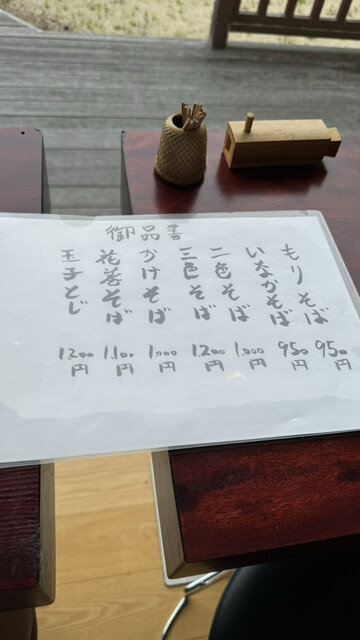 御品書
もりそば 950円
いなかそば 950円
二色そば 1.000円
三色そば 1.200円
かけそば 1.000円
花巻そば 1.100円
玉子とじ 1.200円